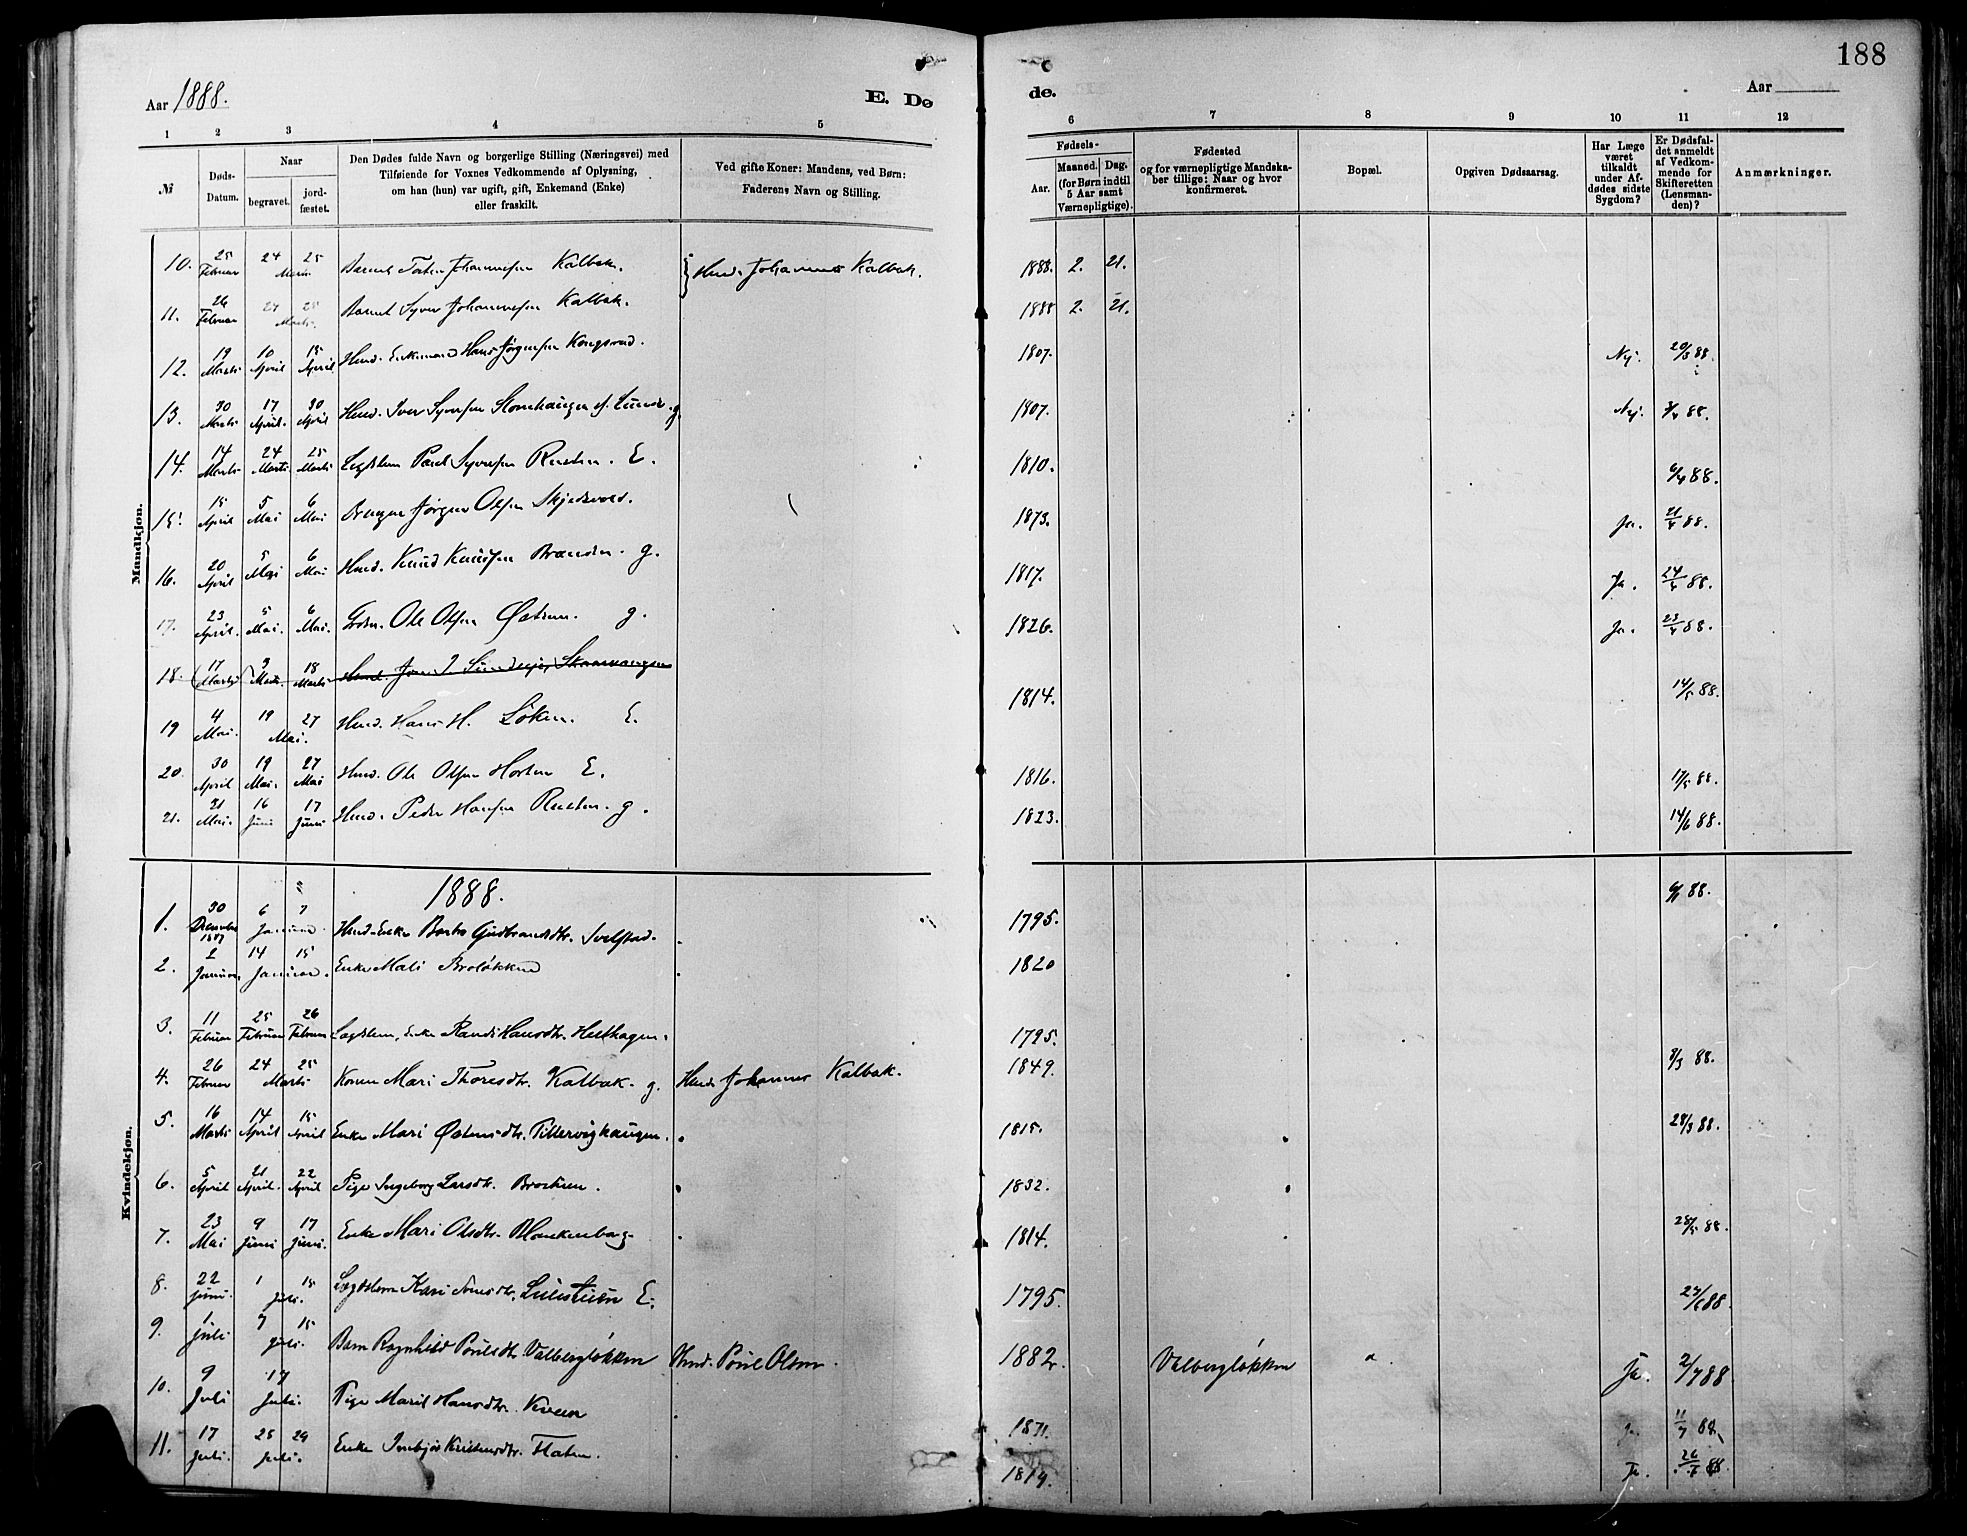 188
Aar 1888.
E. Dø
de.
Aar
1 2 3 4 5
6 7 8 9 10 11 12
№
Døds-Datum.
Naar
begravet.
jordfæstet.
Den Dødes fulde Navn og borgerlige Stilling (Næringsvei) med
Tilføiende for Voxnes Vedkommende af Oplysning,
om han (hun) var ugift, gift, Enkemand (Enke)
eller fraskilt.
Ved gifte Koner: Mandens, ved Børn:
Faderens Navn og Stilling.
Fødsels-
Aar.
Maaned. Dag.
(for Børn indtil
5 Aar samt
Værnepligtige).
Fødested
og for værnepligtige Mandska-
ber tillige: Naar og hvor
konfirmeret.
Bopæl.
Opgiven Dødsaarsag.
Har Læge
været
tilkaldt
under Af-
dødes sidste
Sygdom?
Er Dødsfal-
det anmeldt
af Vedkom-
mende for
Skifteretten
(Lensman-
den)?
Anmærkninger.
Mandkjøn.
10. 25 Februar 24 25 Marts Johannesen Kalbak. Johannes Kalbak. 1888. 2. 21.
11. 26 Februar 24 25 Marts. Syver Johannesen Kalbak. 1888 2. 21.
12. 19 Marts 10 April 15 April Enkemand Hans Jørgensen Kongsrud. 1807. Nej. 20/3 88.
13. 30 Marts 17 April. 30 April Iver Syversen g. 1807. Nej. 3/4 88.
14. 14 Marts 24 Marts 25 Marts Lægdslem Paul Syversen Rusten. E. 1810. 6/4 88.
15. 15 April 5 Mai 6 Mai Jørgen Olsen Skjedsvold. 1873. Ja. 21/4 88.
16. 20 April 5 Mai 6 Mai Knud Knudsen g. 1817. Ja. 24/4 88.
17. 23 April. 5 Mai. 6 Mai. Ole Olsen g. 1826. Ja. 23/4 88.
18. 17 Marts 3 Marts 18 Marts 1814. 14/5 88.
19 4 Mai. 19 27 Mai. Hans H. Løken. E.
20. 30 April 19 Mai. 27 Mai Ole Olsen Horten E. 1816. 17/5 88.
21. 21 Mai. 16 Juni 17 Juni Peder Hansen Rusten. g. 1823. 14/6 88.
Kvindekjøn.
1888.
1. 30 December 1887 6 7 Januar. Gudbrandsdtr. 1795. 6/1 88.
2. 2 Januar. 14 15 Januar. Enke Mali Broløkken 1820
3. 11 Februar 25 Februar 26 Februar Lægdslem, Enke Randi Hansdtr. 1795.
4. 26 Februar 24 25 Marts Konen Mari Thoresdtr. Kalbak. g. Johannes Kalbak. 1849. 8/3 88.
5. 16 Marts 14 April 15 April Enke Mari 1815. 28/3 88.
6. 5 April 21 April. 22 April Pige Ingeborg Larsdtr. 1832.
7. 23 Mai 9 Juni 17 Juni. Enke Mari Olsdtr. Blankenborg. 1814. 28/5 88.
8. 22 Juni. 1 15 Juli. Lægdslem Kari E. 1795. 23/6 88.
9. 1 Juli 7 15 Juli. Barn Ragnhild Poulsdtr. Valbergløkken Poul Olsen. 1882. Valbergløkken Ja. 2/7 88
10. 9 Juli 17 Juli. Pige Marit Hansdtr. Kveen 1871. Ja. 11/7 88.
11. 17 Juli. 28 29 Juli. Enke Flaten. 1819. Ja. 26/7 88.